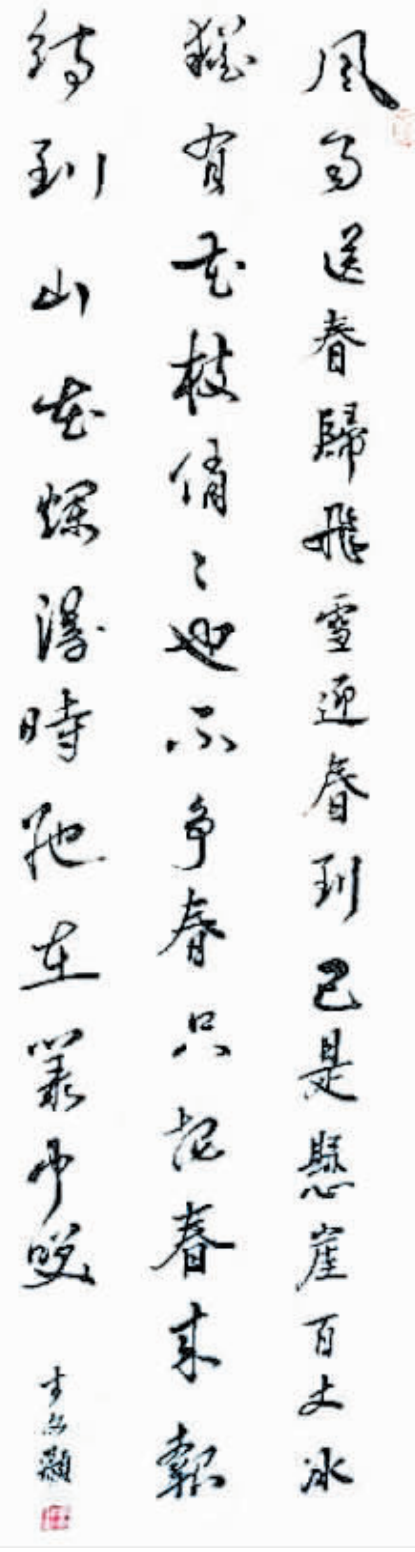 風雨送春歸飛雪迎春到已是懸崖百丈冰
猶有花枝俏〻也不争春只把春来報
待到山花爛漫時她在叢中咲